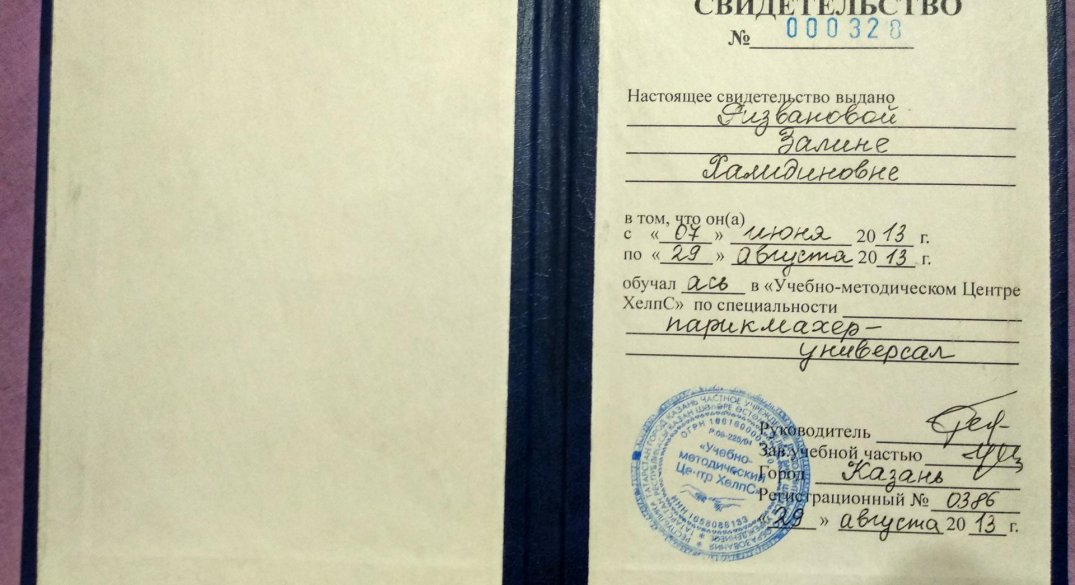 СВИДЕТЕЛЬСТВО
№ 000328
Настоящее свидетельство выдано
Ризвановой
Залине
Халидиновне
в том, что он(а)
с «07» июня 2013 г.
по «29» августа 2013 г.
обучал ась в «Учебно-методическом Центре
ХелпС» по специальности
парикмахер-
универсал
Руководитель
Зав.учебной частью
Город Казань
Регистрационный № 0386
«29» августа 2013 г.
«Учебно-
методический
Центр ХелпС»